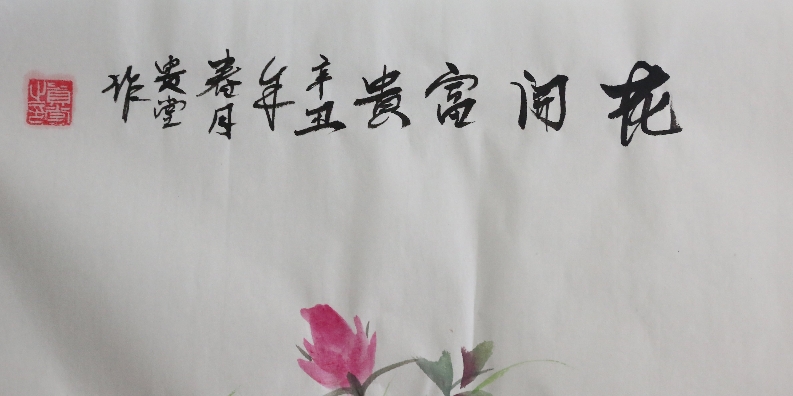 花開富貴
辛丑
年
春月
贵堂
作